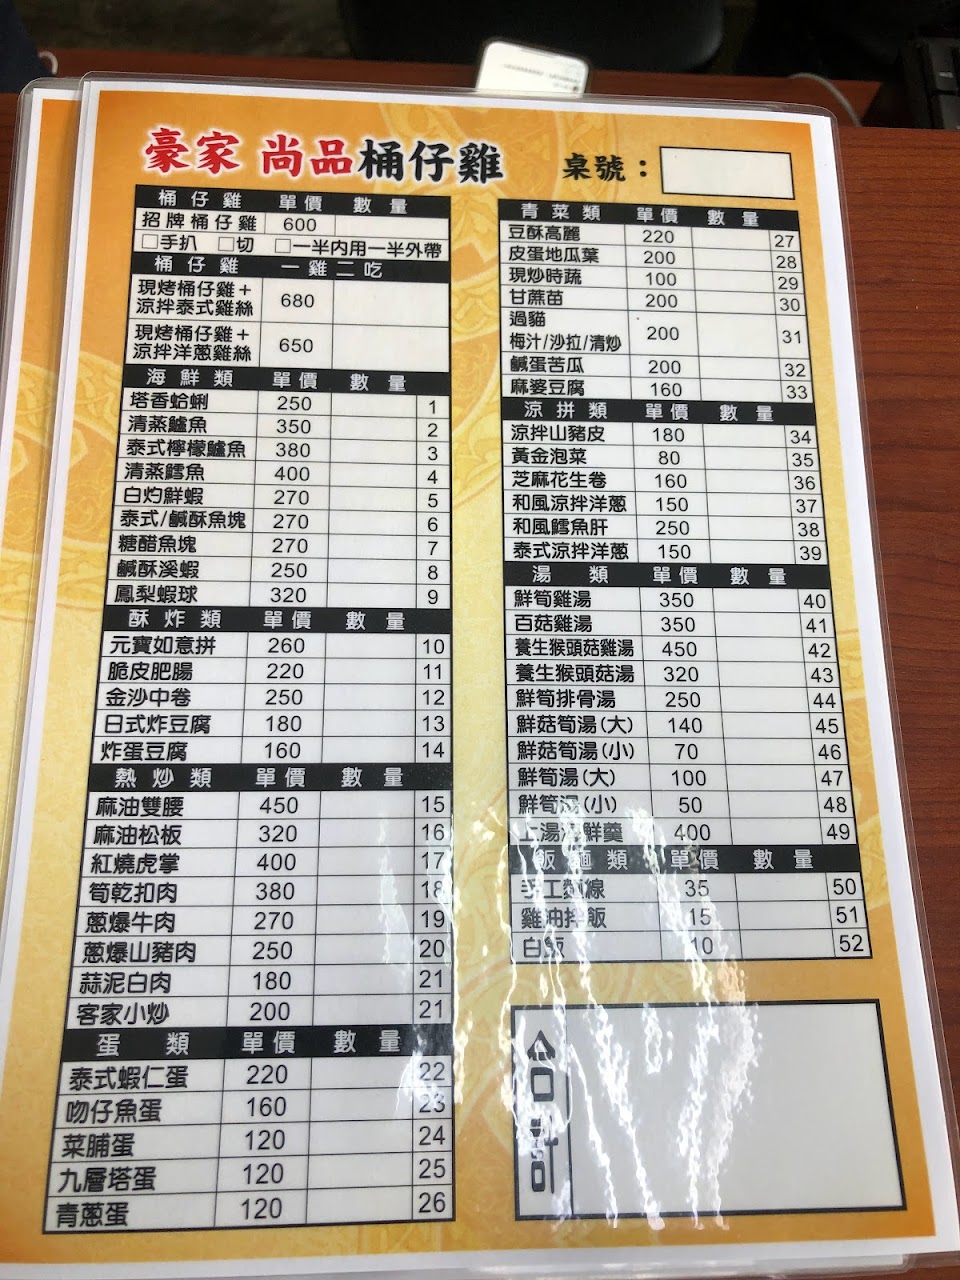 豪家 尚品桶仔雞
桌號：
桶仔雞 單價 數量
招牌桶仔雞 600
□手扒 □切 □一半內用一半外帶
桶仔雞 一雞二吃
現烤桶仔雞+
涼拌泰式雞絲 680
現烤桶仔雞+
涼拌洋蔥雞絲 650
海鮮類 單價 數量
塔香蛤蜊 250 1
清蒸鱸魚 350 2
泰式檸檬鱸魚 380 3
清蒸鱈魚 400 4
白灼鮮蝦 270 5
泰式/鹹酥魚塊 270 6
糖醋魚塊 270 7
鹹酥溪蝦 250 8
鳳梨蝦球 320 9
酥炸類 單價 數量
元寶如意拼 260 10
脆皮肥腸 220 11
金沙中卷 250 12
日式炸豆腐 180 13
炸蛋豆腐 160 14
熱炒類 單價 數量
麻油雙腰 450 15
麻油松板 320 16
紅燒虎掌 400 17
筍乾扣肉 380 18
蔥爆牛肉 270 19
蔥爆山豬肉 250 20
蒜泥白肉 180 21
客家小炒 200 21
蛋類 單價 數量
泰式蝦仁蛋 220 22
吻仔魚蛋 160 23
菜脯蛋 120 24
九層塔蛋 120 25
青蔥蛋 120 26
青菜類 單價 數量
豆酥高麗 220 27
皮蛋地瓜葉 200 28
現炒時蔬 100 29
甘蔗苗 200 30
過貓
梅汁/沙拉/清炒 200 31
鹹蛋苦瓜 200 32
麻婆豆腐 160 33
涼拼類 單價 數量
涼拌山豬皮 180 34
黃金泡菜 80 35
芝麻花生卷 160 36
和風涼拌洋蔥 150 37
和風鱈魚肝 250 38
泰式涼拌洋蔥 150 39
湯類 單價 數量
鮮筍雞湯 350 40
百菇雞湯 350 41
養生猴頭菇雞湯 450 42
養生猴頭菇湯 320 43
鮮筍排骨湯 250 44
鮮菇筍湯(大) 140 45
鮮菇筍湯(小) 70 46
鮮筍湯(大) 100 47
鮮筍湯(小) 50 48
上湯海鮮羹 400 49
飯麵類 單價 數量
手工麵線 35 50
雞油拌飯 15 51
白飯 10 52
合計